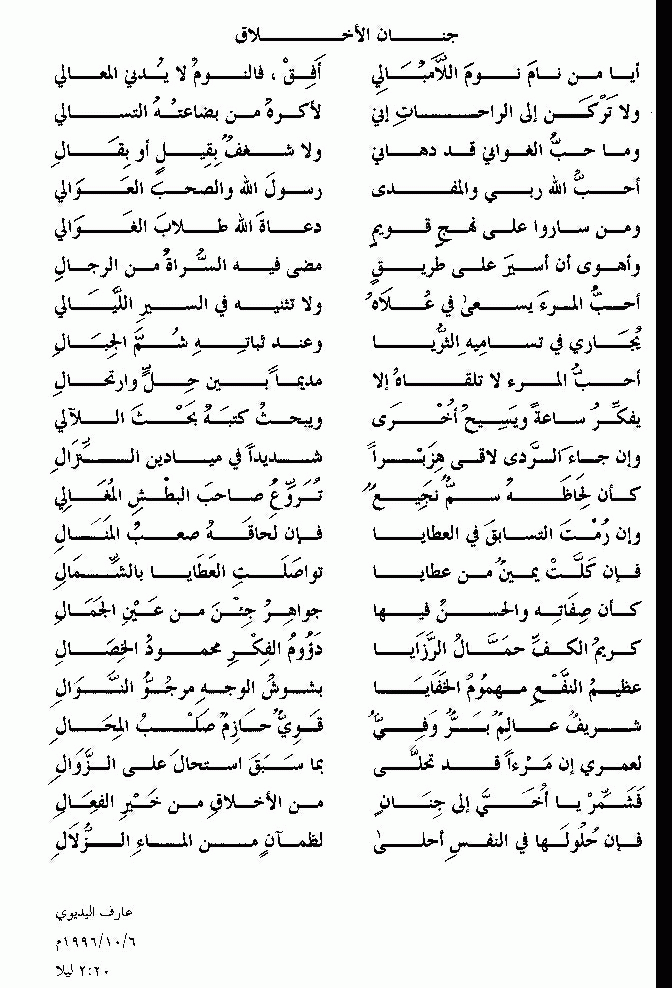 جنان الأخلاق
أيا من نام نوم اللّامُبالي أَفِقْ ، فالنومُ لا يُدني المعالي
ولا تَرْكَن إلى الراحاتِ إني لأكرهُ من بضاعتُهُ التسالي
وما حبُّ الغواني قد دهاني ولا شغفٌ بِقِيلٍ أو بِقَالِ
أحبُّ الله ربي والمفدى رسولَ الله والصحبَ العَوَالي
ومن ساروا على نهجٍ قويمٍ دعاةَ الله طلابَ الغَوَالي
وأهوى أن أسيرَ على طريقٍ مضى فيه السُّراةُ من الرجالِ
أحبُّ المرءَ يسعىٰ في عُلَاهُ ولا تثنيه في السيرِ اللَّيَالي
يُجَاري في تساميهِ الثُّريا وعند ثباتِهِ شُمَّ الجِبَالِ
أحبُّ المرء لا تلقاهُ إلا مديماً بين حِلٍّ وارتحالِ
يفكِّرُ ساعةً ويَسِيحُ أُخْرَى ويبحثُ كتبَهُ بَحْثَ اللآلي
وإن جاءَ الرَّدى لاقى هِزَبْراً شديداً في ميادين النِّزَالِ
كأن لِحَاظَهُ سمٌّ نَجِيعٌ تُرَوِّعُ صاحبَ البطْشِ المُغَالِي
وإن رُمْتَ التسابقَ في العطايا فإن لحاقَهُ صعبُ المَنَالِ
فإن كَلَّتْ يمينٌ من عطايا تواصَلَتِ العَطَايا بالشِّمَالِ
كأن صِفَاتِه والحسنُ فيها جواهرُ جِئْنَ من عَيْنِ الجَمَالِ
كريمُ الكفِّ حمَّالُ الرَّزَايا دَؤُومُ الفِكْرِ محمودُ الخِصَالِ
عظيمُ النفْعِ مهمُومُ الخَفَايَا بشوشُ الوجهِ مرجُوُّ النَّوَالِ
شريفٌ عالِمٌ بَرٌّ وَفِيٌّ قَوِيٌّ حَازِمٌ صَلْبُ المِحَالِ
لعمري إن مَرْءاً قد تحلَّى بما سَبَقَ استحالَ على الزَّوَالِ
فَشَمِّرْ يا أُخَيَّ إلى جِنَانٍ من الأخلاقِ من خَيْرِ الفِعَالِ
فإن حُلُولَها في النفسِ أحلىٰ لظمآنٍ من الماءِ الزُّلَالِ
عارف اليديوي
١٩٩٦/١٠/٦م
٢:٢٠ ليلا